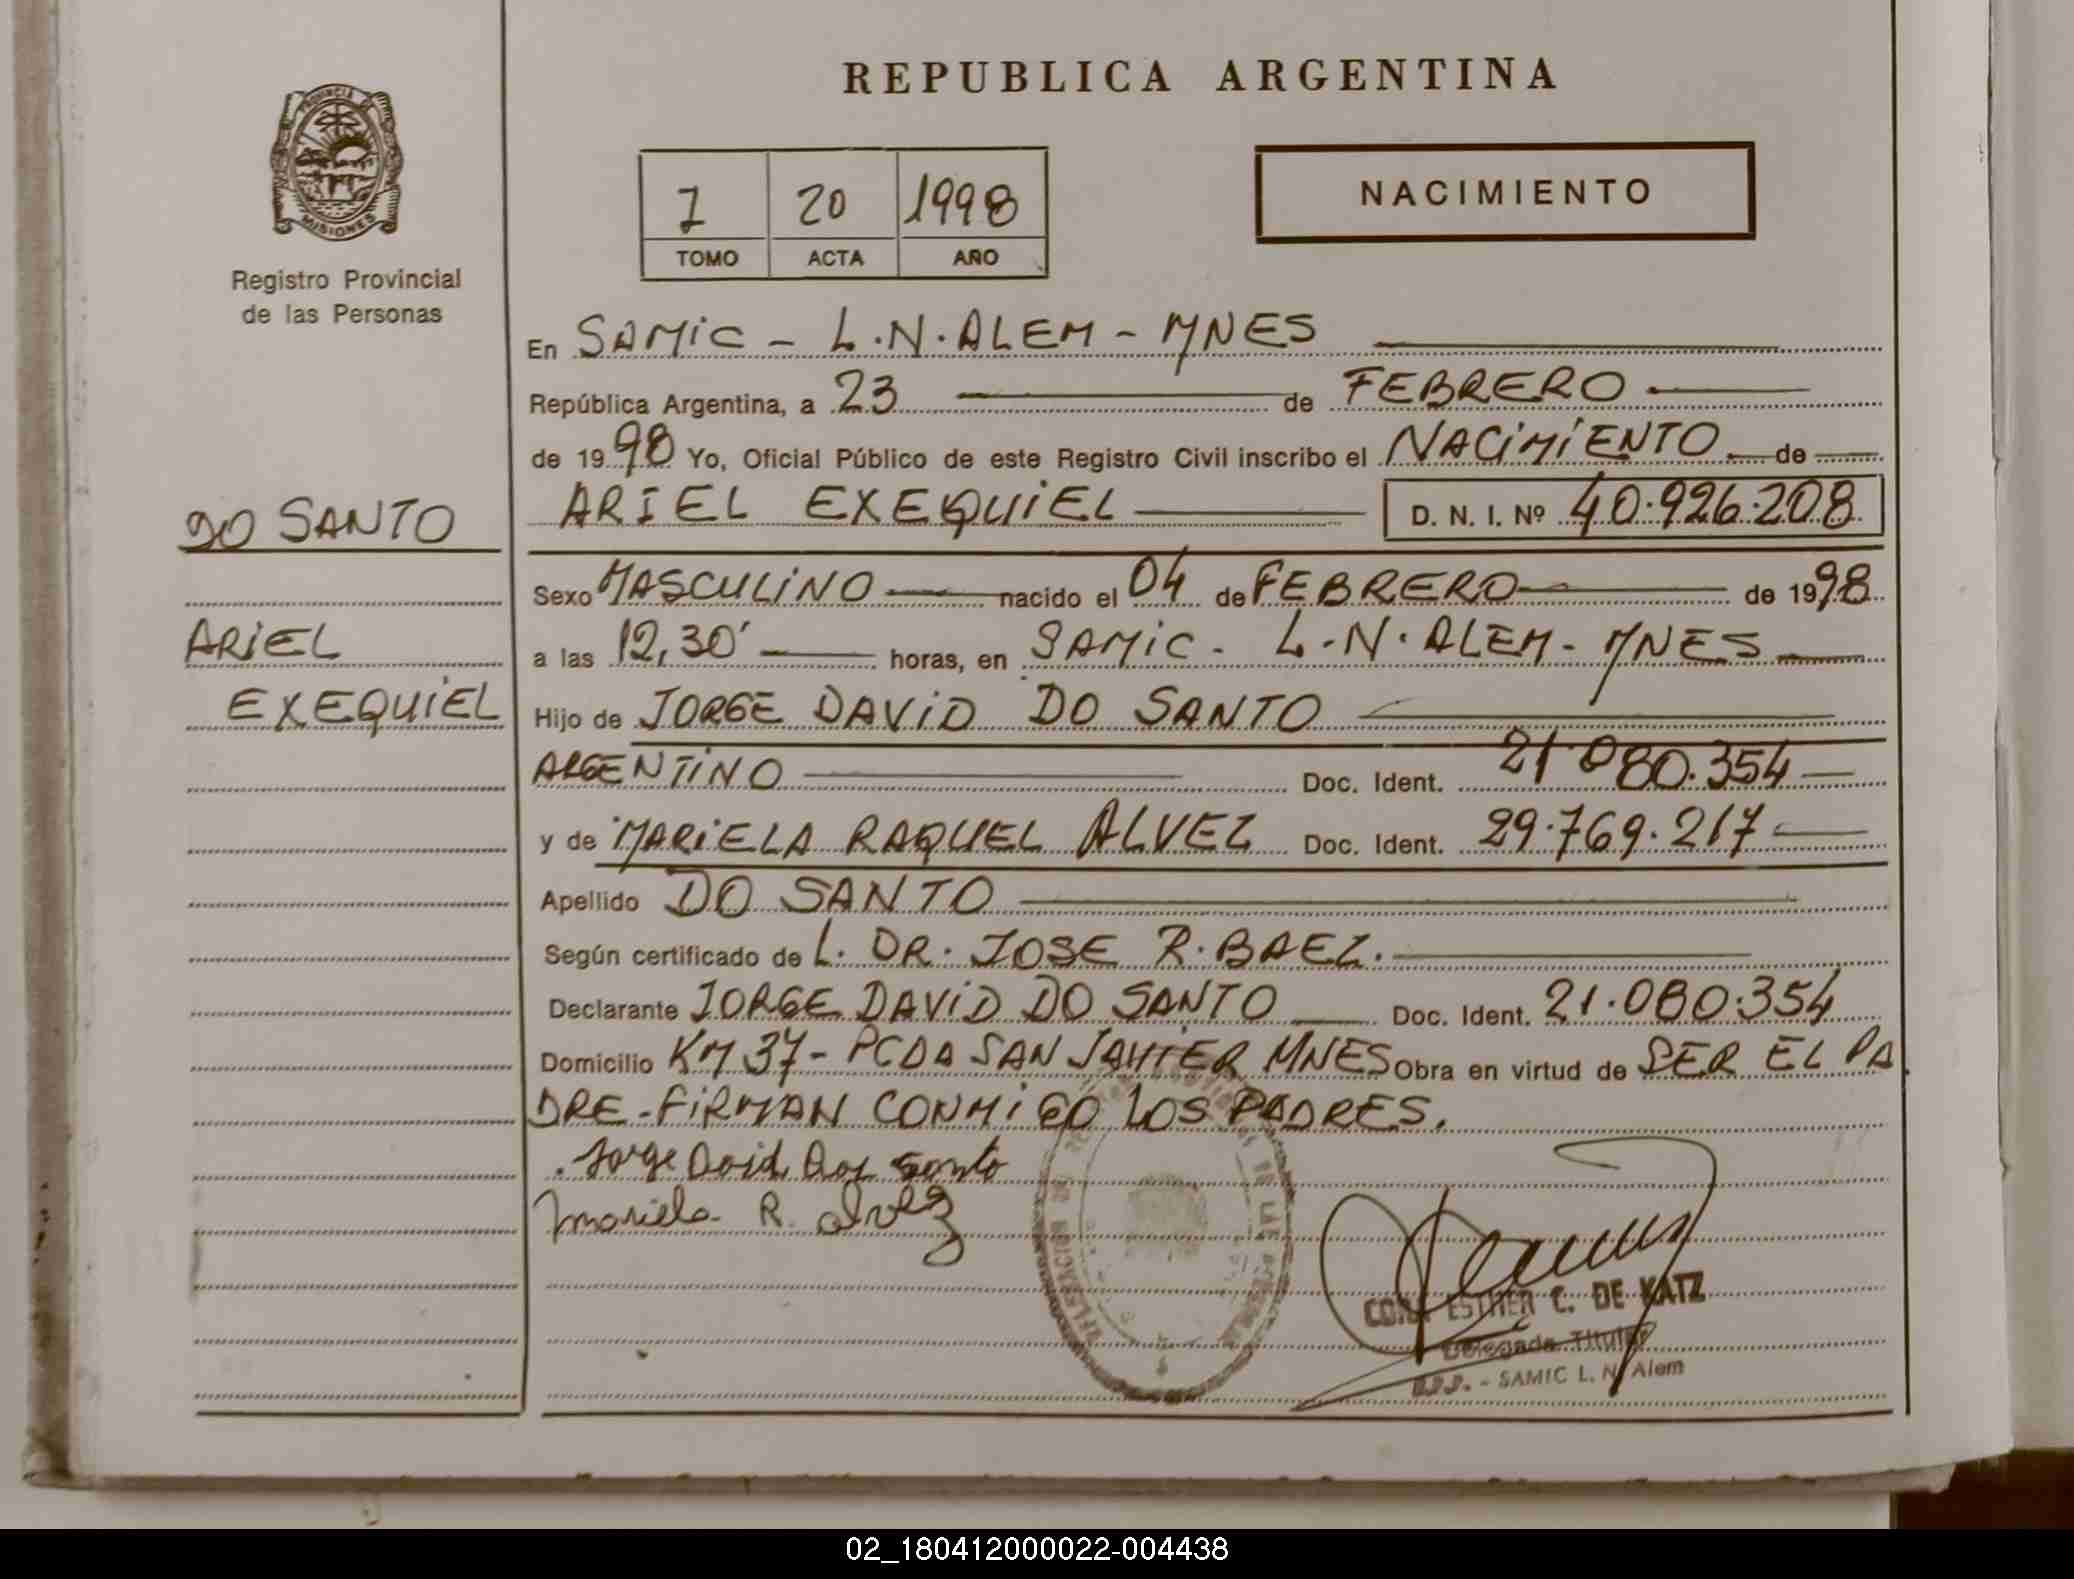 REPUBLICA ARGENTINA
PROVINCIA DE
MISIONES
Registro Provincial
de las Personas
7 20 1998
TOMO ACTA AÑO
NACIMIENTO
En SAMiC - L.N.ALEM - MNES
República Argentina, a 23 de FEBRERO
de 1998 Yo, Oficial Público de este Registro Civil inscribo el NACiMiENTO de
ARIEL EXEQUiEL D. N. I. Nº 40.926.208
DO SANTO
ARiEL
EXEQUiEL
Sexo MASCULiNO nacido el 04 de FEBRERO de 1998
a las 12,30' horas, en SAMiC - L.N.ALEM - MNES
Hijo de JORGE DAViD DO SANTO
ARGENTiNO Doc. Ident. 21.080.354
y de MARiELA RAQUEL ALVEZ Doc. Ident. 29.769.217
Apellido DO SANTO
Según certificado de L. DR. JOSE R. BAEZ.
Declarante JORGE DAViD DO SANTO Doc. Ident. 21.080.354
Domicilio KM 37 - PCDA SAN JAViER MNES Obra en virtud de SER EL PA
DRE - FiRMAN CONMiGO LOS PADRES.
Jorge David Dos Santo
Mariela R. Alvez
ESTHER C. DE KATZ
Delegada Titular
R.P.P. - SAMIC L. N. Alem
02_180412000022-004438